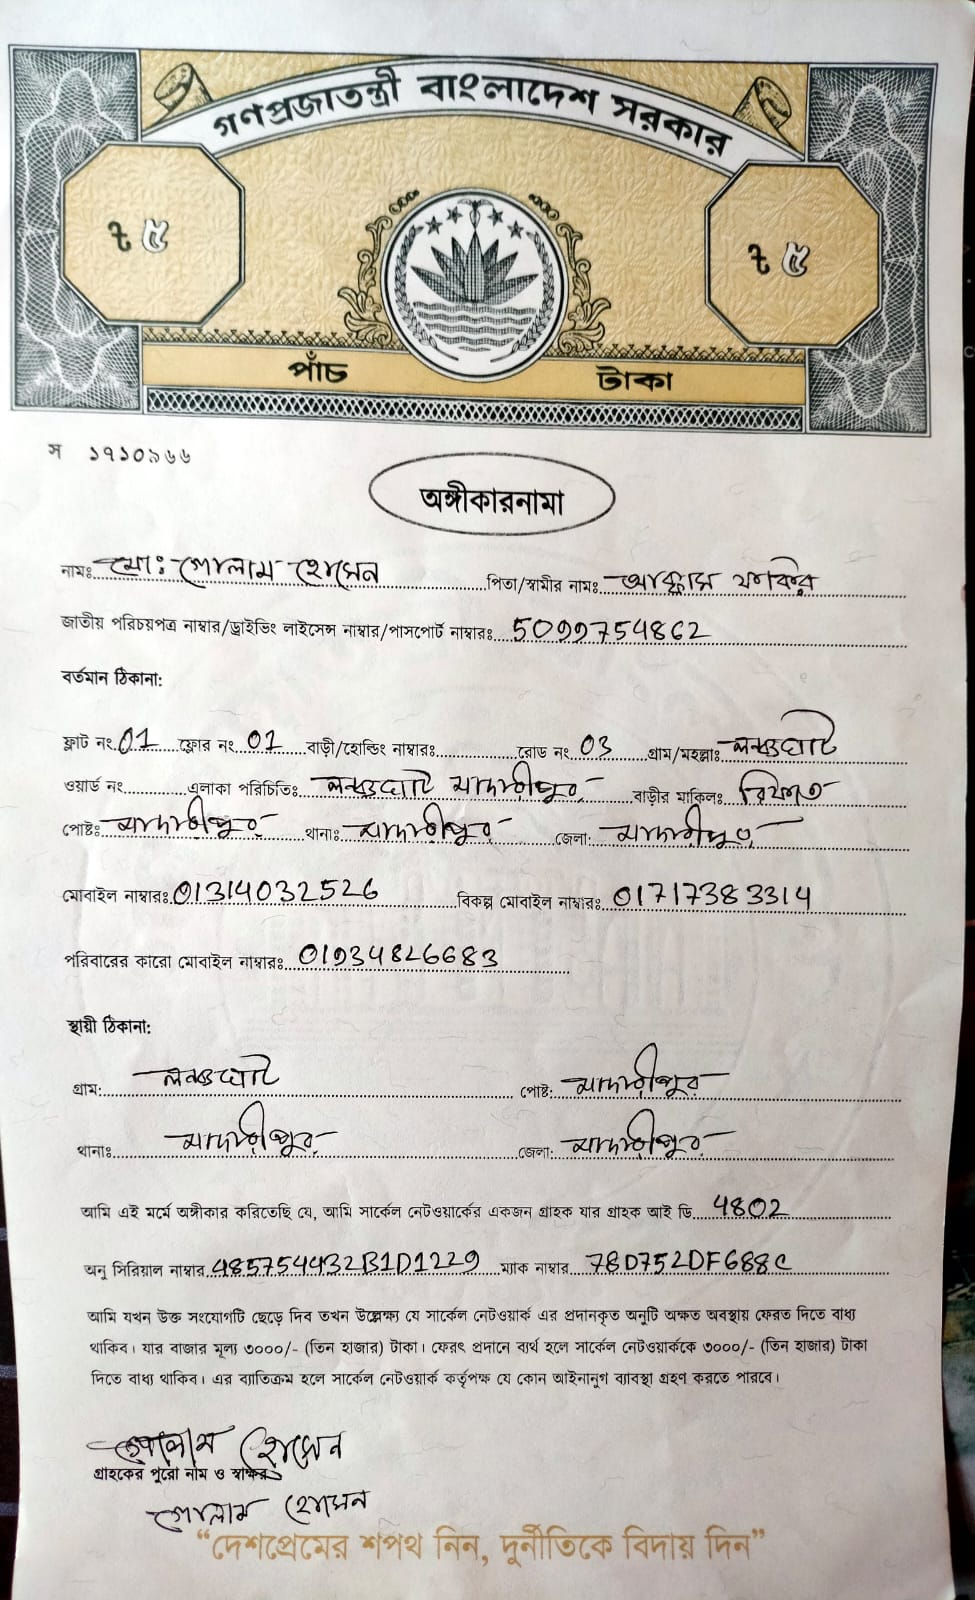 গণপ্রজাতন্ত্রী বাংলাদেশ সরকার
৳ ৫ ৳ ৫
পাঁচ টাকা
স ১৭১০৯৬৬
অঙ্গীকারনামা
নামঃ মোঃ গোলাম হোসেন পিতা/স্বামীর নামঃ আক্কাস ফকির
জাতীয় পরিচয়পত্র নাম্বার/ড্রাইভিং লাইসেন্স নাম্বার/পাসপোর্ট নাম্বারঃ 5099754862
বর্তমান ঠিকানা:
ফ্লাট নং 01 ফ্লোর নং 01 বাড়ী/হোল্ডিং নাম্বারঃ রোড নং 03 গ্রাম/মহল্লাঃ লঞ্চঘাট
ওয়ার্ড নং এলাকা পরিচিতিঃ লঞ্চঘাট মাদারীপুর বাড়ীর মালিকঃ রিফাত
পোষ্টঃ মাদারীপুর থানাঃ মাদারীপুর জেলা: মাদারীপুর
মোবাইল নাম্বারঃ 01314032526 বিকল্প মোবাইল নাম্বারঃ 01717383314
পরিবারের কারো মোবাইল নাম্বারঃ 01934826683
স্থায়ী ঠিকানা:
গ্রাম: লঞ্চঘাট পোষ্ট: মাদারীপুর
থানাঃ মাদারীপুর জেলা: মাদারীপুর
আমি এই মর্মে অঙ্গীকার করিতেছি যে, আমি সার্কেল নেটওয়ার্কের একজন গ্রাহক যার গ্রাহক আই ডি 4802
অনু সিরিয়াল নাম্বার 485754432B1D1229 ম্যাক নাম্বার 78D752DF688C
আমি যখন উক্ত সংযোগটি ছেড়ে দিব তখন উল্লেখ্য যে সার্কেল নেটওয়ার্ক এর প্রদানকৃত অনুটি অক্ষত অবস্থায় ফেরত দিতে বাধ্য
থাকিব। যার বাজার মূল্য ৩০০০/- (তিন হাজার) টাকা। ফেরৎ প্রদানে ব্যর্থ হলে সার্কেল নেটওয়ার্ককে ৩০০০/- (তিন হাজার) টাকা
দিতে বাধ্য থাকিব। এর ব্যাতিক্রম হলে সার্কেল নেটওয়ার্ক কর্তৃপক্ষ যে কোন আইনানুগ ব্যাবস্থা গ্রহণ করতে পারবে।
গোলাম হোসেন
গ্রাহকের পুরো নাম ও স্বাক্ষর
গোলাম হোসেন
“দেশপ্রেমের শপথ নিন, দুর্নীতিকে বিদায় দিন”